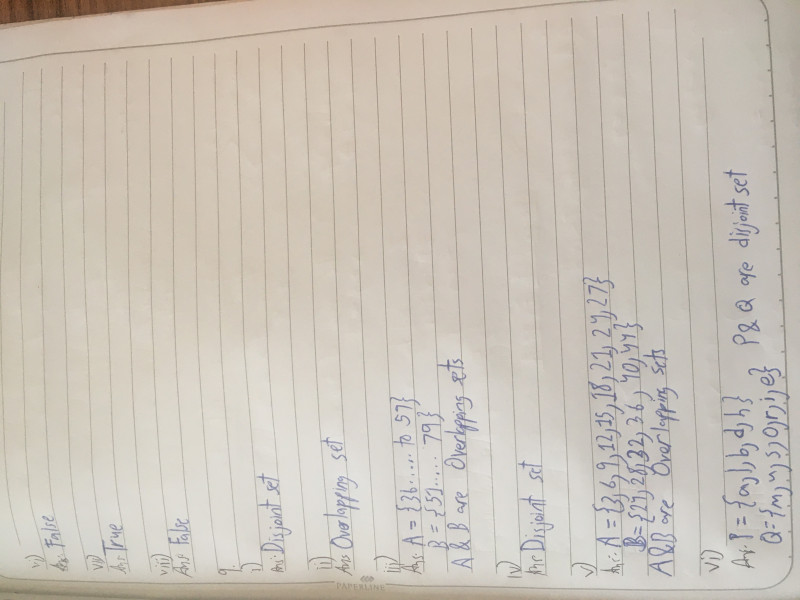 vi)
Ans: False
vii)
Ans: True
viii)
Ans: False
9.
i)
Ans: Disjoint set
ii)
Ans: Overlapping set
iii)
Ans: A = {36...... to 57}
B = {51...... 79}
A & B are Overlapping sets
iv)
Ans: Disjoint set
v)
Ans: A = {3,6,9,12,15,18,21,24,27}
B = {24,28,32,36, 40,44}
A&B are Overlapping sets
vi)
Ans: P = {a,l,b,d,h} P& Q are disjoint set
Q = {m,u,s,o,r,i,e}
PAPERLINE